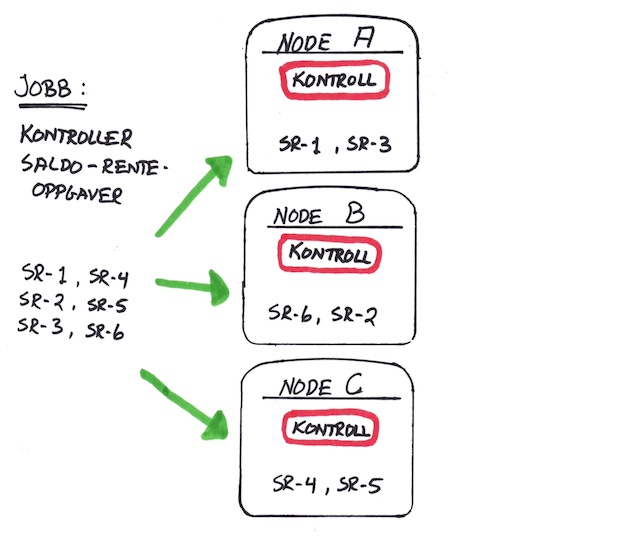 JOBB :
KONTROLLER
SALDO-RENTE-
OPPGAVER
SR-1 , SR-4
SR-2 , SR-5
SR-3 , SR-6
NODE A
KONTROLL
SR-1 , SR-3
NODE B
KONTROLL
SR-6, SR-2
NODE C
KONTROLL
SR-4 , SR-5